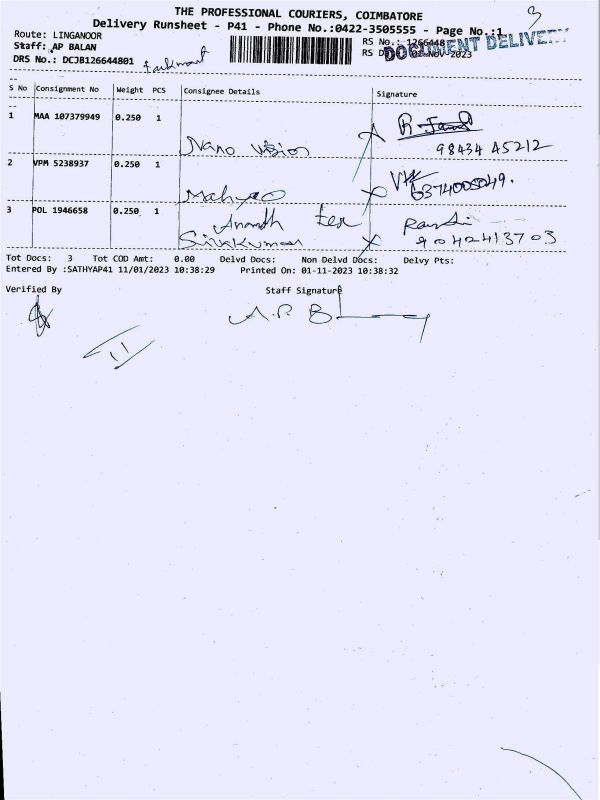 3
THE PROFESSIONAL COURIERS, COIMBATORE
Delivery Runsheet - P41 - Phone No.:0422-3505555 - Page No.:1
Route: LINGANOOR
RS No.: 1266448
DOCUMENT DELIVERY
Staff: AP BALAN
RS D 01-NOV-2023
DRS No.: DCJB126644801
S No Consignment No Weight PCS Consignee Details Signature
1 MAA 107379949 0.250 1
Nano Vision
98434 45212
2 VPM 5238937 0.250 1
6374005049.
3 POL 1946658 0.250 1 Anandh Tex
Sivakumar 9042413703
Tot Docs: 3 Tot COD Amt: 0.00 Delvd Docs: Non Delvd Docs: Delvy Pts:
Entered By :SATHYAP41 11/01/2023 10:38:29 Printed On: 01-11-2023 10:38:32
Verified By Staff Signature
A.P. B